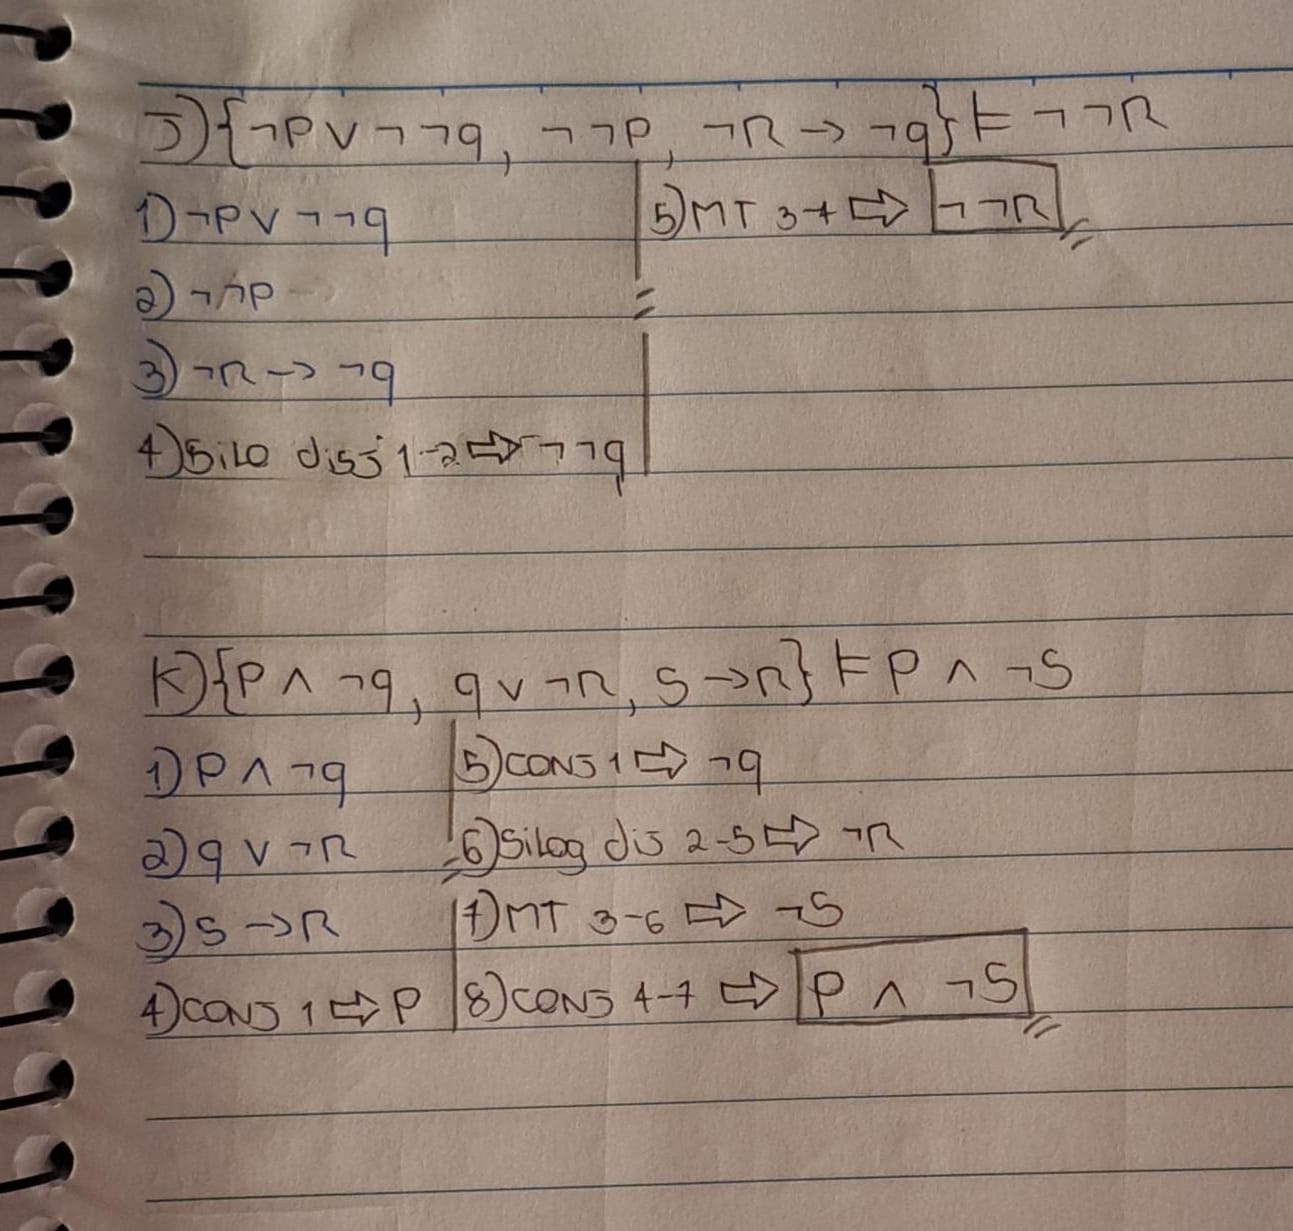 J) {¬P ∨ ¬¬q, ¬¬P, ¬R → ¬q} ⊨ ¬¬R
1) ¬P ∨ ¬¬q
2) ¬¬P
3) ¬R → ¬q
4) Silo disj 1-2 ⇨ ¬¬q
5) MT 3-4 ⇨ ¬¬R
K) {P ∧ ¬q, q ∨ ¬R, S → R} ⊨ P ∧ ¬S
1) P ∧ ¬q
2) q ∨ ¬R
3) S → R
4) CONJ 1 ⇨ P
5) CONJ 1 ⇨ ¬q
6) Silog dis 2-5 ⇨ ¬R
7) MT 3-6 ⇨ ¬S
8) CONJ 4-7 ⇨ P ∧ ¬S